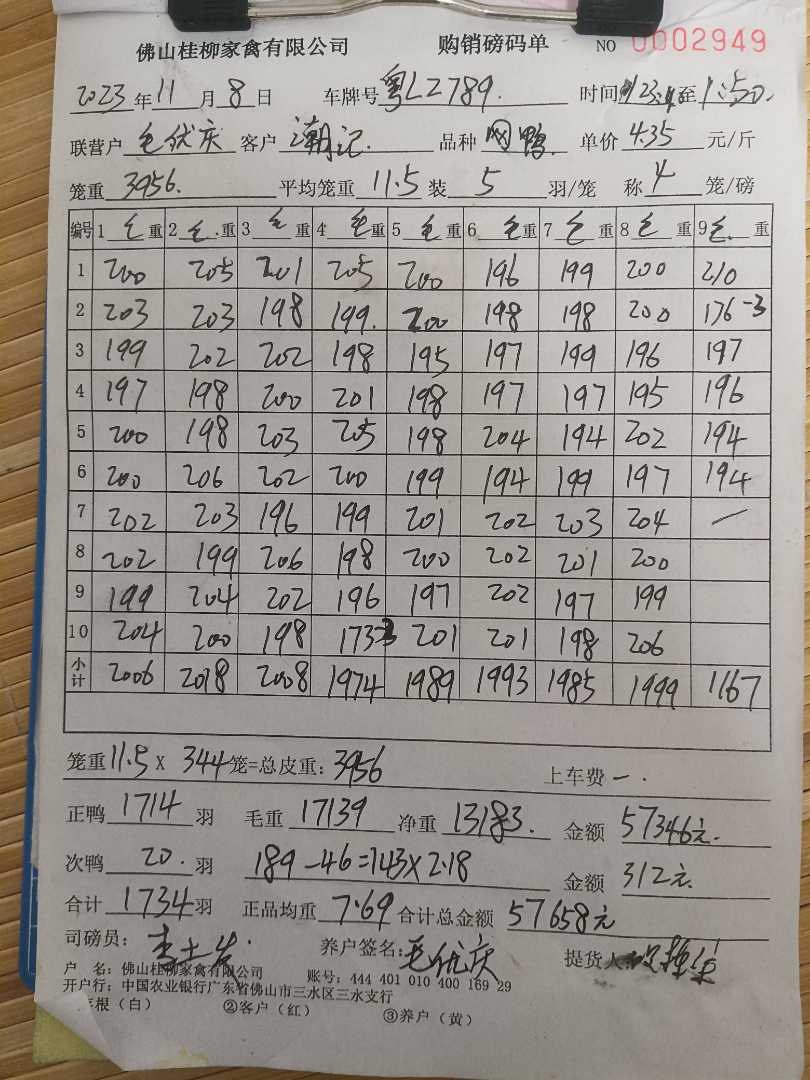 佛山桂柳家禽有限公司 购销磅码单 NO 0002949
2023年11月8日 车牌号 粤L2789. 时间 至1:50.
联营户 毛优庆 客户 潮记. 品种 网鸭. 单价 4.35 元/斤
笼重 3956. 平均笼重 11.5 装 5 羽/笼 称 4 笼/磅
编号 1 毛 重 2 毛 重 3 毛 重 4 毛 重 5 毛 重 6 毛 重 7 毛 重 8 毛 重 9 毛 重
1 200 205 201 205 200 196 199 200 210
2 203 203 198 199. 200 198 198 200 176-3
3 199 202 202 198 195 197 199 196 197
4 197 198 200 201 198 197 197 195 196
5 200 198 203 205 198 204 194 202 194
6 200 206 202 200 199 194 199 197 194
7 202 203 196 199 201 202 203 204 —
8 202 199 206 198 200 202 201 200
9 199 204 202 196 197 202 197 199
10 204 200 198 173-3 201 201 198 206
小计 2006 2018 2008 1974 1989 1993 1985 1999 1167
笼重 11.5 X 344 笼=总皮重: 3956 上车费 — .
正鸭 1714 羽 毛重 17139 净重 13183. 金额 57346元.
次鸭 20. 羽 189-46=143×2.18 金额 312元.
合计 1734 羽 正品均重 7.69 合计总金额 57658元
司磅员: 养户签名: 毛优庆 提货人:
户 名: 佛山桂柳家禽有限公司 账号: 444 401 010 400 169 29
开户行: 中国农业银行广东省佛山市三水区三水支行
存根(白) ②客户(红) ③养户(黄)